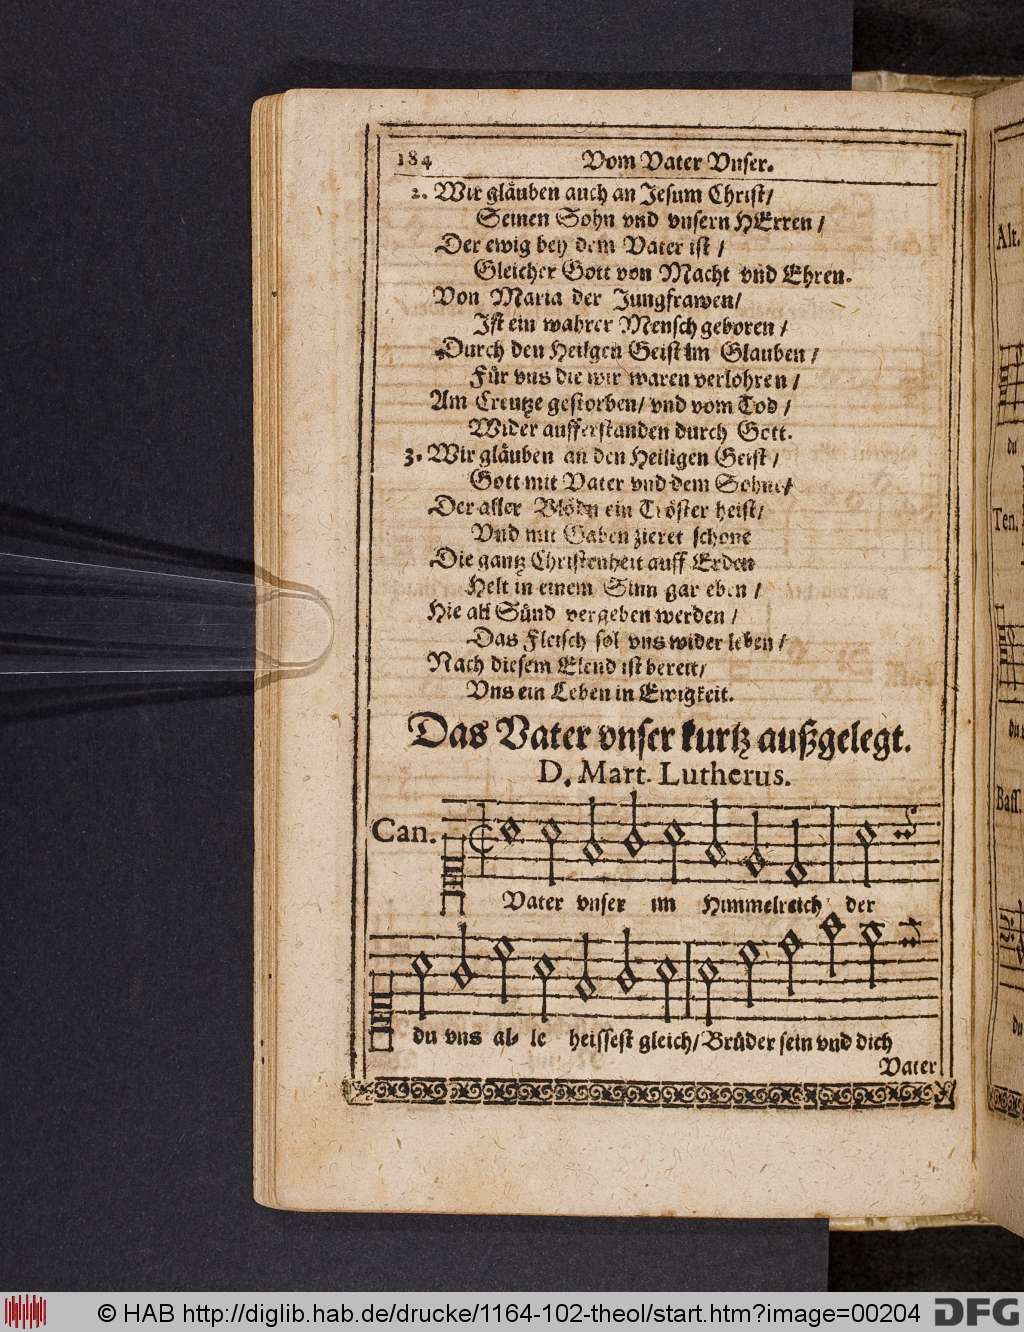 184 Vom Vater Vnser.
2. Wir gläuben auch an Jesum Christ/
Seinen Sohn vnd vnsern HErren /
Der ewig bey dem Vater ist /
Gleicher Gott von Macht vnd Ehren.
Von Maria der Jungfrawen/
Ist ein wahrer Mensch geboren /
Durch den Heilgen Geist im Glauben /
Für vns die wir waren verlohren /
Am Creutze gestorben/ vnd vom Tod /
Wider aufferstanden durch Gott.
3. Wir gläuben an den Heiligen Geist /
Gott mit Vater vnd dem Sohne/
Der aller Blödn ein Tröster heist/
Vnd mit Gaben zieret schone
Die gantz Christenheit auff Erden
Helt in einem Sinn gar eben /
Hie all Sünd vergeben werden /
Das Fleisch sol vns wider leben /
Nach diesem Elend ist bereit/
Vns ein Leben in Ewigkeit.
Das Vater vnser kurtz außgelegt.
D. Mart. Lutherus.
Can.
Vater vnser im Himmelreich der
du vns al- le heissest gleich/ Brüder sein vnd dich
Vater
Alt.
du
Ten.
du
Bass.
du
© HAB http://diglib.hab.de/drucke/1164-102-theol/start.htm?image=00204 DFG